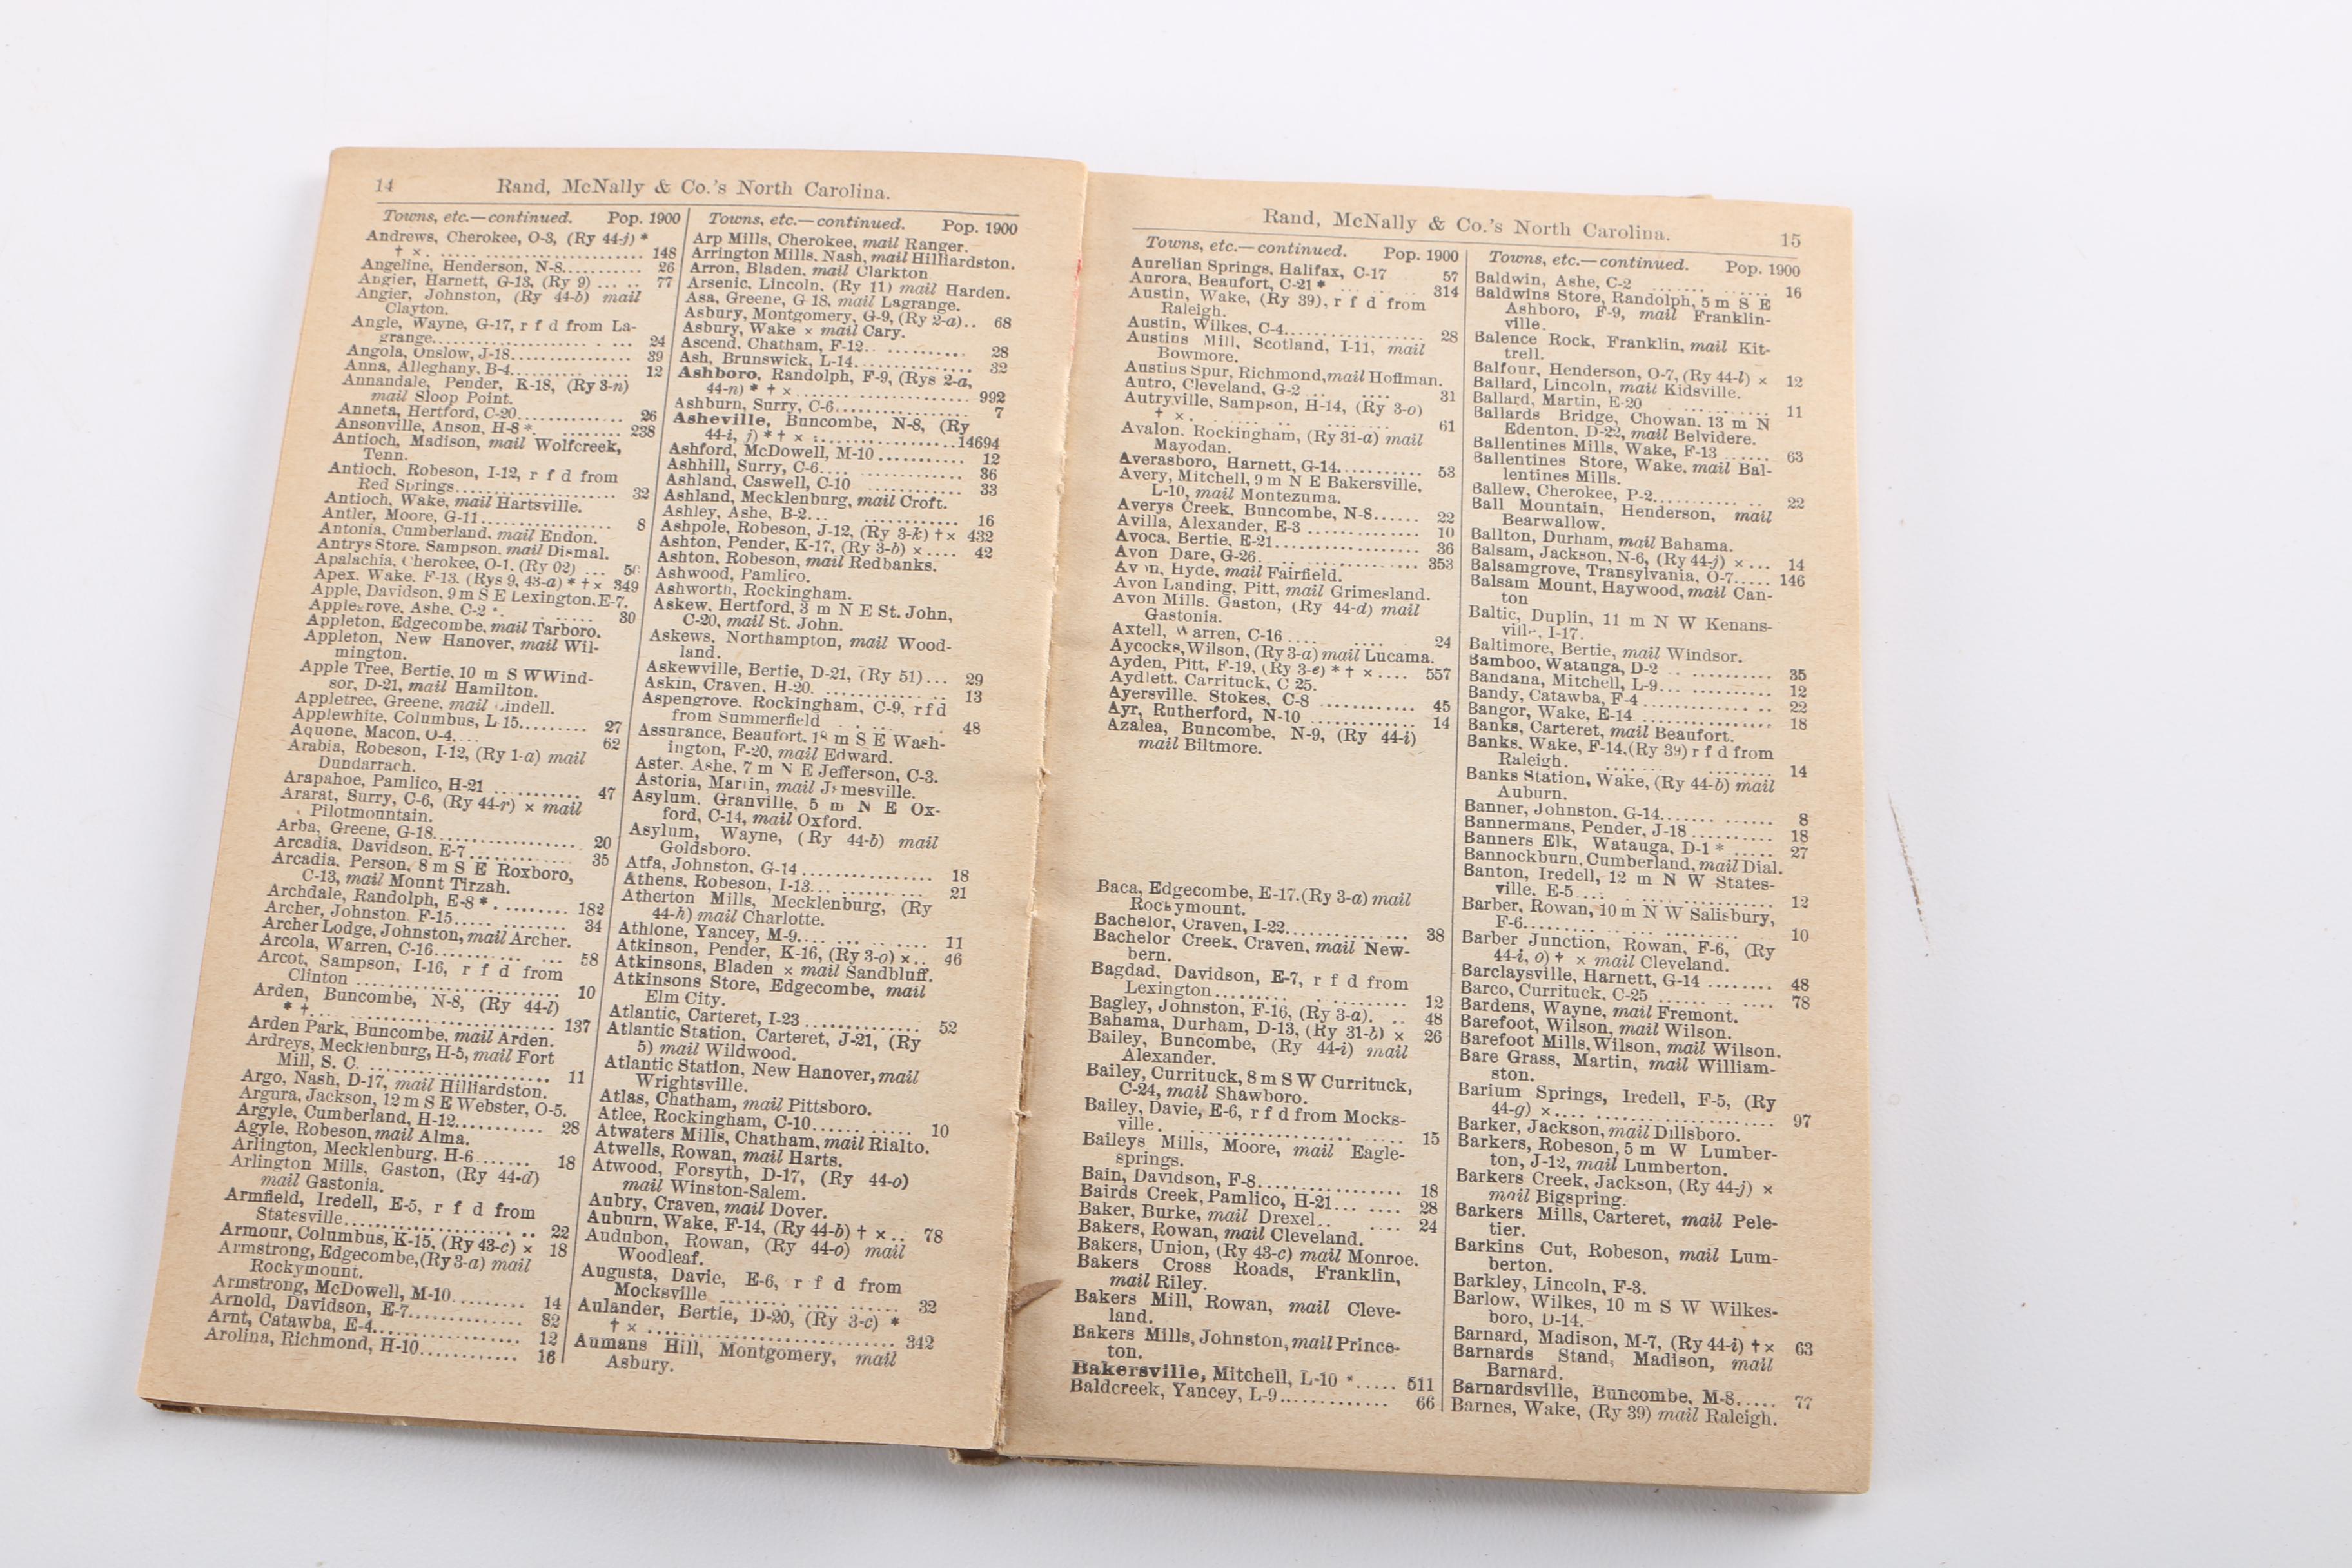 14
Rand, McNally & Co.'s North Carolina.
Towns, etc.—continued. Pop. 1900
Andrews, Cherokee, O-3, (Ry 44-j) *
† ×. .............................. 148
Angeline, Henderson, N-8........... 26
Angier, Harnett, G-13, (Ry 9) ... .. 77
Angier, Johnston, (Ry 44-b) mail
Clayton.
Angle, Wayne, G-17, r f d from La-
grange........................ . ... 24
Angola, Onslow, J-18............... 39
Anna, Alleghany, B-4......... ..... 12
Annandale, Pender, K-18, (Ry 3-n)
mail Sloop Point.
Anneta, Hertford, C-20............. 26
Ansonville, Anson, H-8 *. ........ 238
Antioch, Madison, mail Wolfcreek,
Tenn.
Antioch, Robeson, I-12, r f d from
Red Springs.................... 32
Antioch, Wake, mail Hartsville.
Antler, Moore, G-11................ 8
Antonia, Cumberland, mail Endon.
Antrys Store, Sampson, mail Dismal.
Apalachia, Cherokee, O-1, (Ry 02) ...
Apex, Wake, F-13, (Rys 9, 43-a) * † × 349
Apple, Davidson, 9 m S E Lexington, E-7.
Applegrove, Ashe, C-2 *. ..... 30
Appleton, Edgecombe, mail Tarboro.
Appleton, New Hanover, mail Wil-
mington.
Apple Tree, Bertie, 10 m S W Wind-
sor, D-21, mail Hamilton.
Appletree, Greene, mail Lindell.
Applewhite, Columbus, L 15........ 27
Aquone, Macon, O-4.... 62
Arabia, Robeson, I-12, (Ry 1-a) mail
Dundarrach.
Arapahoe, Pamlico, H-21 .......... 47
Ararat, Surry, C-6, (Ry 44-r) × mail
Pilotmountain.
Arba, Greene, G-18................. 20
Arcadia, Davidson, E-7............. 35
Arcadia, Person, 8 m S E Roxboro,
C-13, mail Mount Tirzah.
Archdale, Randolph, E-8 *. ........ 182
Archer, Johnston, F-15..... ....... 34
Archer Lodge, Johnston, mail Archer.
Arcola, Warren, C-16......... ... 58
Arcot, Sampson, I-16, r f d from
Clinton .......................... 10
Arden, Buncombe, N-8, (Ry 44-l)
* †... ........................... 137
Arden Park, Buncombe, mail Arden.
Ardreys, Mecklenburg, H-5, mail Fort
Mill, S. C. ....................... 11
Argo, Nash, D-17, mail Hilliardston.
Argura, Jackson, 12 m S E Webster, O-5.
Argyle, Cumberland, H-12........... 28
Agyle, Robeson, mail Alma.
Arlington, Mecklenburg, H-6....... 18
Arlington Mills, Gaston, (Ry 44-d)
mail Gastonia.
Armfield, Iredell, E-5, r f d from
Statesville........................ 22
Armour, Columbus, K-15, (Ry 43-c) × 18
Armstrong, Edgecombe, (Ry 3-a) mail
Rockymount.
Armstrong, McDowell, M-10......... 14
Arnold, Davidson, E-7.............. 82
Arnt, Catawba, E-4................. 12
Arolina, Richmond, H-10............ 16
Towns, etc.—continued. Pop. 1900
Arp Mills, Cherokee, mail Ranger.
Arrington Mills, Nash, mail Hilliardston.
Arron, Bladen, mail Clarkton
Arsenic, Lincoln, (Ry 11) mail Harden.
Asa, Greene, G 18, mail Lagrange.
Asbury, Montgomery, G-9, (Ry 2-a).. 68
Asbury, Wake × mail Cary.
Ascend, Chatham, F-12.. .......... 28
Ash, Brunswick, L-14............... 32
Ashboro, Randolph, F-9, (Rys 2-a,
44-n) * † ×...................... 992
Ashburn, Surry, C-6................ 7
Asheville, Buncombe, N-8, (Ry
44-i, j) * † × ...................14694
Ashford, McDowell, M-10 ........... 12
Ashhill, Surry, C-6.... ........... 36
Ashland, Caswell, C-10 ............ 33
Ashland, Mecklenburg, mail Croft.
Ashley, Ashe, B-2... ............ 16
Ashpole, Robeson, J-12, (Ry 3-k) † × 432
Ashton, Pender, K-17, (Ry 3-b) ×.... 42
Ashton, Robeson, mail Redbanks.
Ashwood, Pamlico.
Ashworth, Rockingham.
Askew, Hertford, 3 m N E St. John,
C-20, mail St. John.
Askews, Northampton, mail Wood-
land.
Askewville, Bertie, D-21, (Ry 51)... 29
Askin, Craven, H-20. ............ .. 13
Aspengrove, Rockingham, C-9, r f d
from Summerfield ..... 48
Assurance, Beaufort, m S E Wash-
ington, F-20, mail Edward.
Aster, Ashe, 7 m N E Jefferson, C-3.
Astoria, Martin, mail Jamesville.
Asylum, Granville, 5 m N E Ox-
ford, C-14, mail Oxford.
Asylum, Wayne, (Ry 44-b) mail
Goldsboro.
Atfa, Johnston, G-14................ 18
Athens, Robeson, I-13... ..... ... 21
Atherton Mills, Mecklenburg, (Ry
44-h) mail Charlotte.
Athlone, Yancey, M-9.... ... ...... 11
Atkinson, Pender, K-16, (Ry 3-o) ×.. 46
Atkinsons, Bladen × mail Sandbluff.
Atkinsons Store, Edgecombe, mail
Elm City.
Atlantic, Carteret, I-23............ 52
Atlantic Station, Carteret, J-21, (Ry
5) mail Wildwood.
Atlantic Station, New Hanover, mail
Wrightsville.
Atlas, Chatham, mail Pittsboro.
Atlee, Rockingham, C-10...... ..... 10
Atwaters Mills, Chatham, mail Rialto.
Atwells, Rowan, mail Harts.
Atwood, Forsyth, D-17, (Ry 44-o)
mail Winston-Salem.
Aubry, Craven, mail Dover.
Auburn, Wake, F-14, (Ry 44-b) † ×.. 78
Audubon, Rowan, (Ry 44-o) mail
Woodleaf.
Augusta, Davie, E-6, r f d from
Mocksville ........ ..... ...... 32
Aulander, Bertie, D-20, (Ry 3-c) *
† × ............................. 342
Aumans Hill, Montgomery, mail
Asbury.
Rand, McNally & Co.'s North Carolina.
15
Towns, etc.—continued. Pop. 1900
Aurelian Springs, Halifax, C-17 57
Aurora, Beaufort, C-21 * ...... 314
Austin, Wake, (Ry 39), r f d from
Raleigh.
Austin, Wilkes, C-4................ 28
Austins Mill, Scotland, I-11, mail
Bowmore.
Austins Spur, Richmond, mail Hoffman.
Autro, Cleveland, G-2 ... .... 31
Autryville, Sampson, H-14, (Ry 3-o)
† ×. ..... .. ........ 61
Avalon, Rockingham, (Ry 31-a) mail
Mayodan.
Averasboro, Harnett, G-14........... 53
Avery, Mitchell, 9 m N E Bakersville,
L-10, mail Montezuma.
Averys Creek, Buncombe, N-8...... 22
Avilla, Alexander, E-3 ............ 10
Avoca, Bertie, E-21................. 36
Avon Dare, G-26... .............. 353
Avon, Hyde, mail Fairfield.
Avon Landing, Pitt, mail Grimesland.
Avon Mills, Gaston, (Ry 44-d) mail
Gastonia.
Axtell, Warren, C-16 .... .... 24
Aycocks, Wilson, (Ry 3-a) mail Lucama.
Ayden, Pitt, F-19, (Ry 3-e) * † ×.... 557
Aydlett, Carrituck, C 25.
Ayersville, Stokes, C-8 ............ 45
Ayr, Rutherford, N-10 ............. 14
Azalea, Buncombe, N-9, (Ry 44-i)
mail Biltmore.
Baca, Edgecombe, E-17, (Ry 3-a) mail
Rockymount.
Bachelor, Craven, I-22............... 38
Bachelor Creek, Craven, mail New-
bern.
Bagdad, Davidson, E-7, r f d from
Lexington......... . .......... 12
Bagley, Johnston, F-16, (Ry 3-a). .. 48
Bahama, Durham, D-13, (Ry 31-b) × 26
Bailey, Buncombe, (Ry 44-i) mail
Alexander.
Bailey, Currituck, 8 m S W Currituck,
C-24, mail Shawboro.
Bailey, Davie, E-6, r f d from Mocks-
ville. ........................... 15
Baileys Mills, Moore, mail Eagle-
springs.
Bain, Davidson, F-8................. 18
Bairds Creek, Pamlico, H-21... .... 28
Baker, Burke, mail Drexel.. .... 24
Bakers, Rowan, mail Cleveland.
Bakers, Union, (Ry 43-c) mail Monroe.
Bakers Cross Roads, Franklin,
mail Riley.
Bakers Mill, Rowan, mail Cleve-
land.
Bakers Mills, Johnston, mail Prince-
ton.
Bakersville, Mitchell, L-10 *..... 511
Baldcreek, Yancey, L-9............. 66
Towns, etc.—continued. Pop. 1900
Baldwin, Ashe, C-2 ....... ...... 16
Baldwins Store, Randolph, 5 m S E
Ashboro, F-9, mail Franklin-
ville.
Balence Rock, Franklin, mail Kit-
trell.
Balfour, Henderson, O-7, (Ry 44-l) × 12
Ballard, Lincoln, mail Kidsville.
Ballard, Martin, E-20 ........... 11
Ballards Bridge, Chowan, 13 m N
Edenton, D-22, mail Belvidere.
Ballentines Mills, Wake, F-13 ...... 63
Ballentines Store, Wake, mail Bal-
lentines Mills.
Ballew, Cherokee, P-2........... .. 22
Ball Mountain, Henderson, mail
Bearwallow.
Ballton, Durham, mail Bahama.
Balsam, Jackson, N-6, (Ry 44-j) ×... 14
Balsamgrove, Transylvania, O-7..... 146
Balsam Mount, Haywood, mail Can-
ton
Baltic, Duplin, 11 m N W Kenans-
ville, I-17.
Baltimore, Bertie, mail Windsor.
Bamboo, Watauga, D-2 .. .......... 35
Bandana, Mitchell, L-9... .......... 12
Bandy, Catawba, F-4 ............ .. 22
Bangor, Wake, E-14 ................ 18
Banks, Carteret, mail Beaufort.
Banks, Wake, F-14, (Ry 39) r f d from
Raleigh. ...... ........ 14
Banks Station, Wake, (Ry 44-b) mail
Auburn.
Banner, Johnston, G-14...... ...... 8
Bannermans, Pender, J-18 .......... 18
Banners Elk, Watauga, D-1 * ..... 27
Bannockburn, Cumberland, mail Dial.
Banton, Iredell, 12 m N W States-
ville, E-5.... . .............. 12
Barber, Rowan, 10 m N W Salisbury,
F-6....... ...... ......... 10
Barber Junction, Rowan, F-6, (Ry
44-i, o) † × mail Cleveland.
Barclaysville, Harnett, G-14 ........ 48
Barco, Currituck, C-25 ...... .. .... 78
Bardens, Wayne, mail Fremont.
Barefoot, Wilson, mail Wilson.
Barefoot Mills, Wilson, mail Wilson.
Bare Grass, Martin, mail William-
ston.
Barium Springs, Iredell, F-5, (Ry
44-g) ×.... ................... 97
Barker, Jackson, mail Dillsboro.
Barkers, Robeson, 5 m W Lumber-
ton, J-12, mail Lumberton.
Barkers Creek, Jackson, (Ry 44-j) ×
mail Bigspring.
Barkers Mills, Carteret, mail Pele-
tier.
Barkins Cut, Robeson, mail Lum-
berton.
Barkley, Lincoln, F-3.
Barlow, Wilkes, 10 m S W Wilkes-
boro, D-14.
Barnard, Madison, M-7, (Ry 44-i) † × 63
Barnards Stand, Madison, mail
Barnard.
Barnardsville, Buncombe, M-8..... 77
Barnes, Wake, (Ry 39) mail Raleigh.